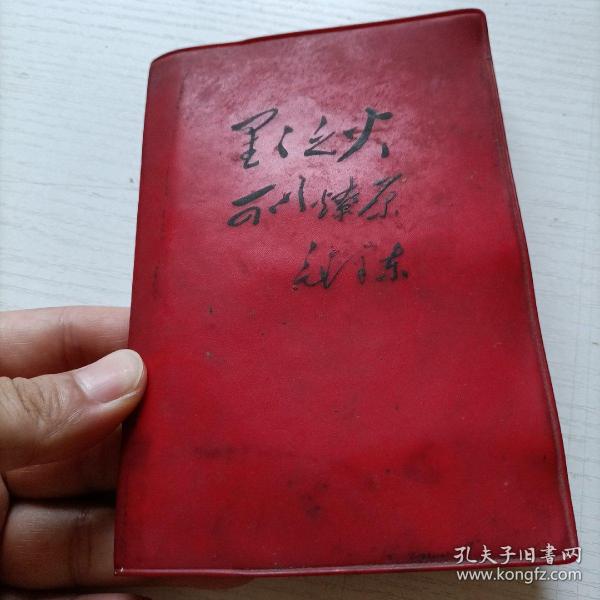 星々之火
可以燎原
毛泽东
孔夫子旧書网
www.kongfz.com